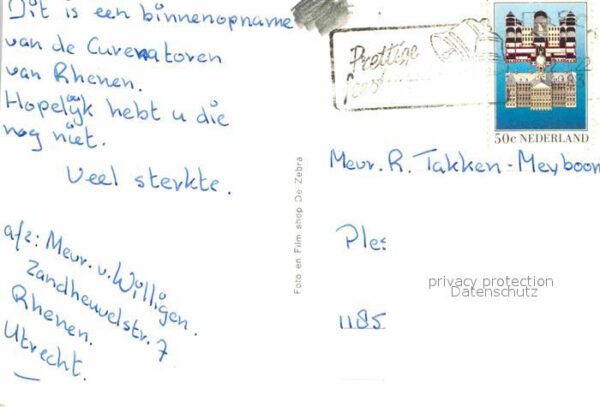 Dit is een binnenopname
van de Curenatoren
van Rhenen.
Hopelijk hebt u die
nog niet.
Veel sterkte.
afz: Mevr. v. Willigen.
Zandheuvelstr. 7
Rhenen.
Utrecht.
Foto en Film shop De Zebra
Prettige
50c NEDERLAND
Mevr. R. Takken-Meyboom
Ples
1185
privacy protection
Datenschutz